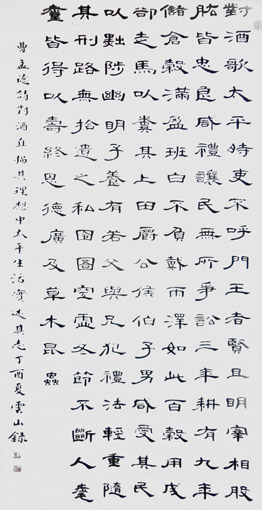 對酒歌太平時吏不呼門王者賢且明宰相股
肱皆忠良咸禮讓民無所爭訟三年耕有九年
儲倉穀滿盈班白不負戴雨澤如此百穀用成
卻走馬以糞其土田爵公侯伯子男咸愛其民
以黜陟幽明子養有若父與兄犯禮法輕重隨
其刑路無拾遺之私囹圄空虛冬節不斷人耄
耋皆得以壽終恩德廣及草木昆蟲
曹孟德詩對酒直描其理想中太平生活實述其志丁酉夏雲山錄